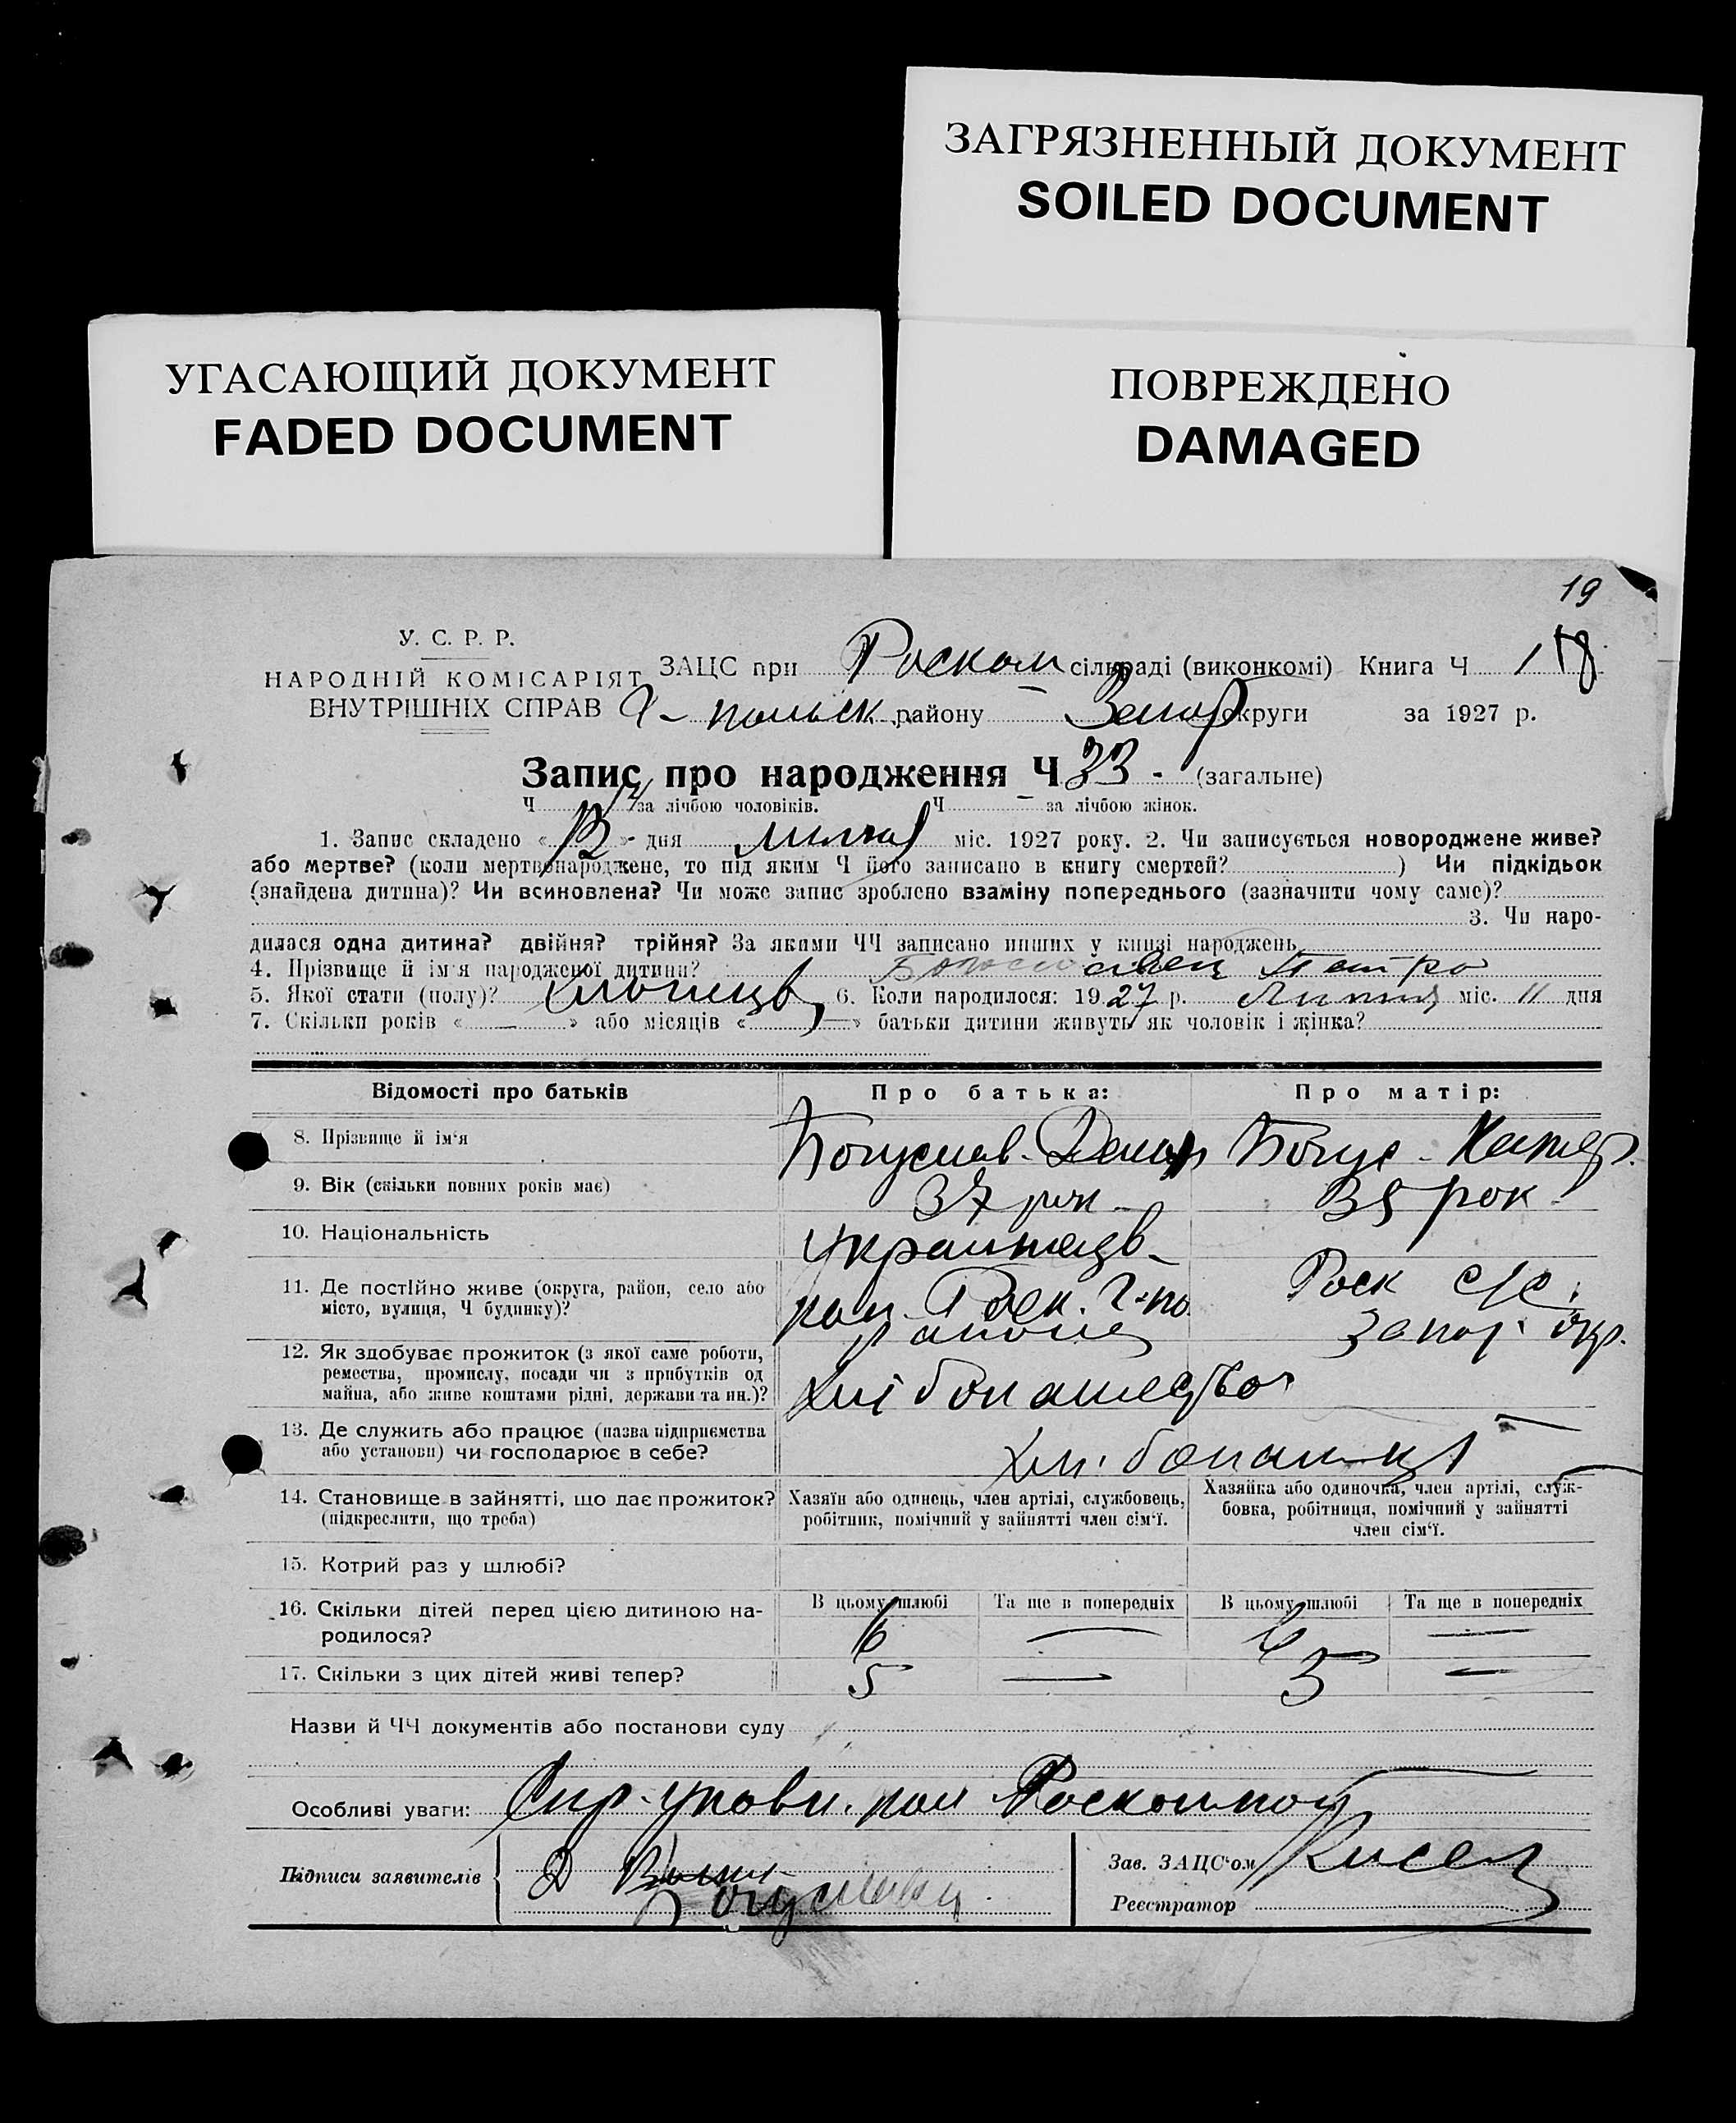 ЗАГРЯЗНЕННЫЙ ДОКУМЕНТ
SOILED DOCUMENT
УГАСАЮЩИЙ ДОКУМЕНТ
FADED DOCUMENT
ПОВРЕЖДЕНО
DAMAGED
19
У. С. Р. Р.
НАРОДНІЙ КОМІСАРІЯТ
ВНУТРІШНІХ СПРАВ
ЗАЦС при сільраді (виконкомі) Книга Ч 1
району Запор округи за 1927 р.
Запис про народження Ч 33 - (загальне)
Ч за лічбою чоловіків. Ч за лічбою жінок.
1. Запис складено « 12 » дня липня міс. 1927 року. 2. Чи записується новороджене живе?
або мертве? (коли мертвонароджене, то під яким Ч його записано в книгу смертей? ) Чи підкідьок
(знайдена дитина)? Чи всиновлена? Чи може запис зроблено взаміну попереднього (зазначити чому саме)?
3. Чи наро-
дилася одна дитина? двійня? трійня? За якими ЧЧ записано инших у книзі народжень
4. Прізвище й ім'я народженої дитини? Петро
5. Якої стати (полу)? хлопець 6. Коли народилося: 1927 р. Липня міс. 11 дня
7. Скільки років « — » або місяців « — » батьки дитини живуть як чоловік і жінка?
Відомості про батьків
Про батька:
Про матір:
8. Прізвище й ім'я
Богуслав.
Богус - Катер.
9. Вік (скільки повних років має)
37 рок -
35 рок -
10. Національність
українець -
11. Де постійно живе (округа, район, село або
місто, вулиця, Ч будинку)?
района
Роск с/с.
Запор. окр.
12. Як здобуває прожиток (з якої саме роботи,
ремества, промислу, посади чи з прибутків од
майна, або живе коштами рідні, держави та ин.)?
хліборобство
13. Де служить або працює (назва підприємства
або установи) чи господарює в себе?
14. Становище в зайнятті, що дає прожиток?
(підкреслити, що треба)
Хазяїн або одинець, член артілі, службовець,
робітник, помічний у зайнятті член сім'ї.
Хазяйка або одиночка, член артілі, служ-
бовка, робітниця, помічний у зайнятті
член сім'ї.
15. Котрий раз у шлюбі?
16. Скільки дітей перед цією дитиною на-
родилося?
В цьому шлюбі
Та ще в попередніх
В цьому шлюбі
Та ще в попередніх
6 — 6 —
17. Скільки з цих дітей живі тепер?
5 — 5 —
Назви й ЧЧ документів або постанови суду
Особливі уваги:
Підписи заявителів
Зав. ЗАЦС'ом Кисел
Реєстратор